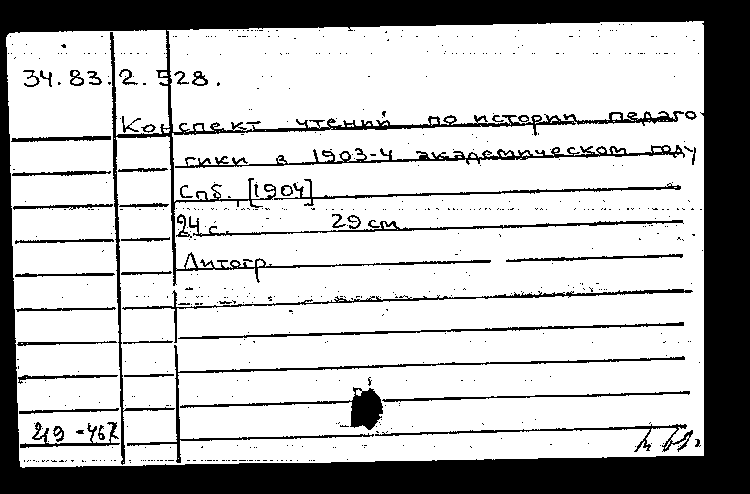 34.83.2.528.
Конспект чтений по истории педаго-
гики в 1903-4 академическом году
Спб., [1904].
24 с. 29 см
Литогр.